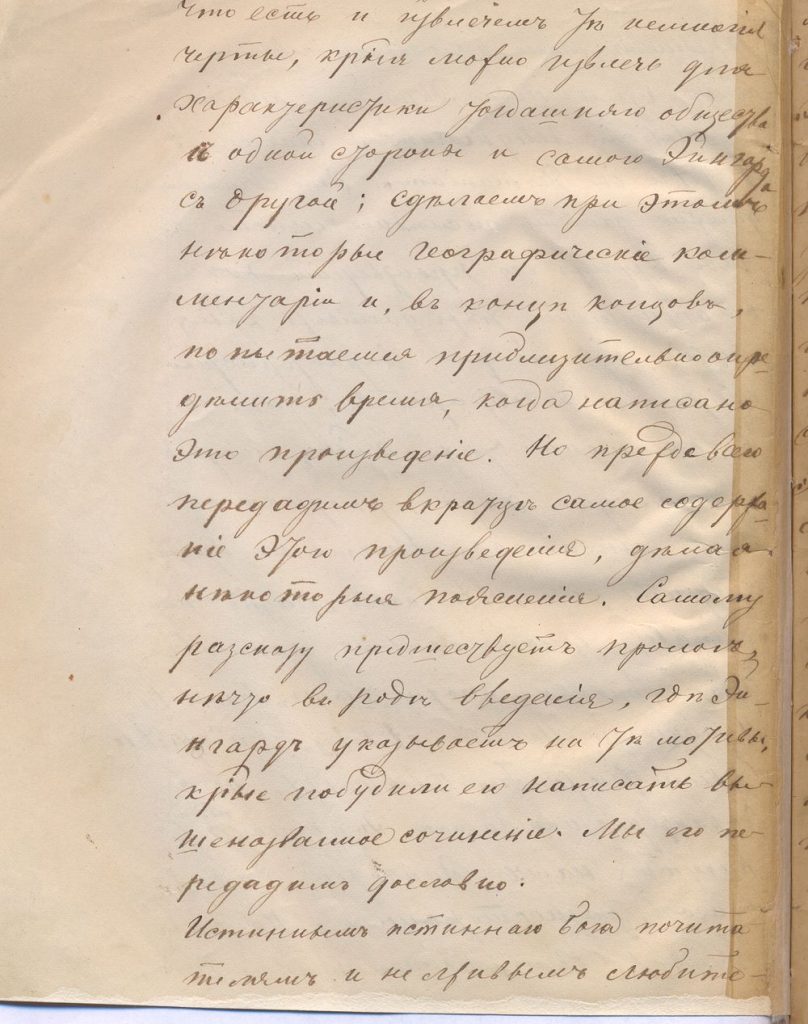 что есть и извлечемъ тѣ немногія
черты, крыя можно извлечь для
характеристики тогдашняго общества
съ одной стороны и самого Эйнгарда
съ другой; сдѣлаемъ при этомъ
нѣкоторые географическіе ком-
ментаріи и, въ концѣ концовъ,
попытаемся приблизительно опре-
дѣлить время, когда написано
это произведеніе. Но прежде всего
передадимъ вкратцѣ самое содержа-
ніе этого произведенія, дѣлая
нѣкоторыя поясненія. Самому
разсказу предшествуетъ прологъ,
нѣчто въ родѣ введенія, гдѣ Эй-
нгардъ указываетъ на тѣ мотивы,
крые побудили его написать вы-
шеназваемое сочиненіе. Мы его пе-
редадимъ дословно.
Истиннымъ истиннаго Бога почита-
телямъ и нелживымъ любите-